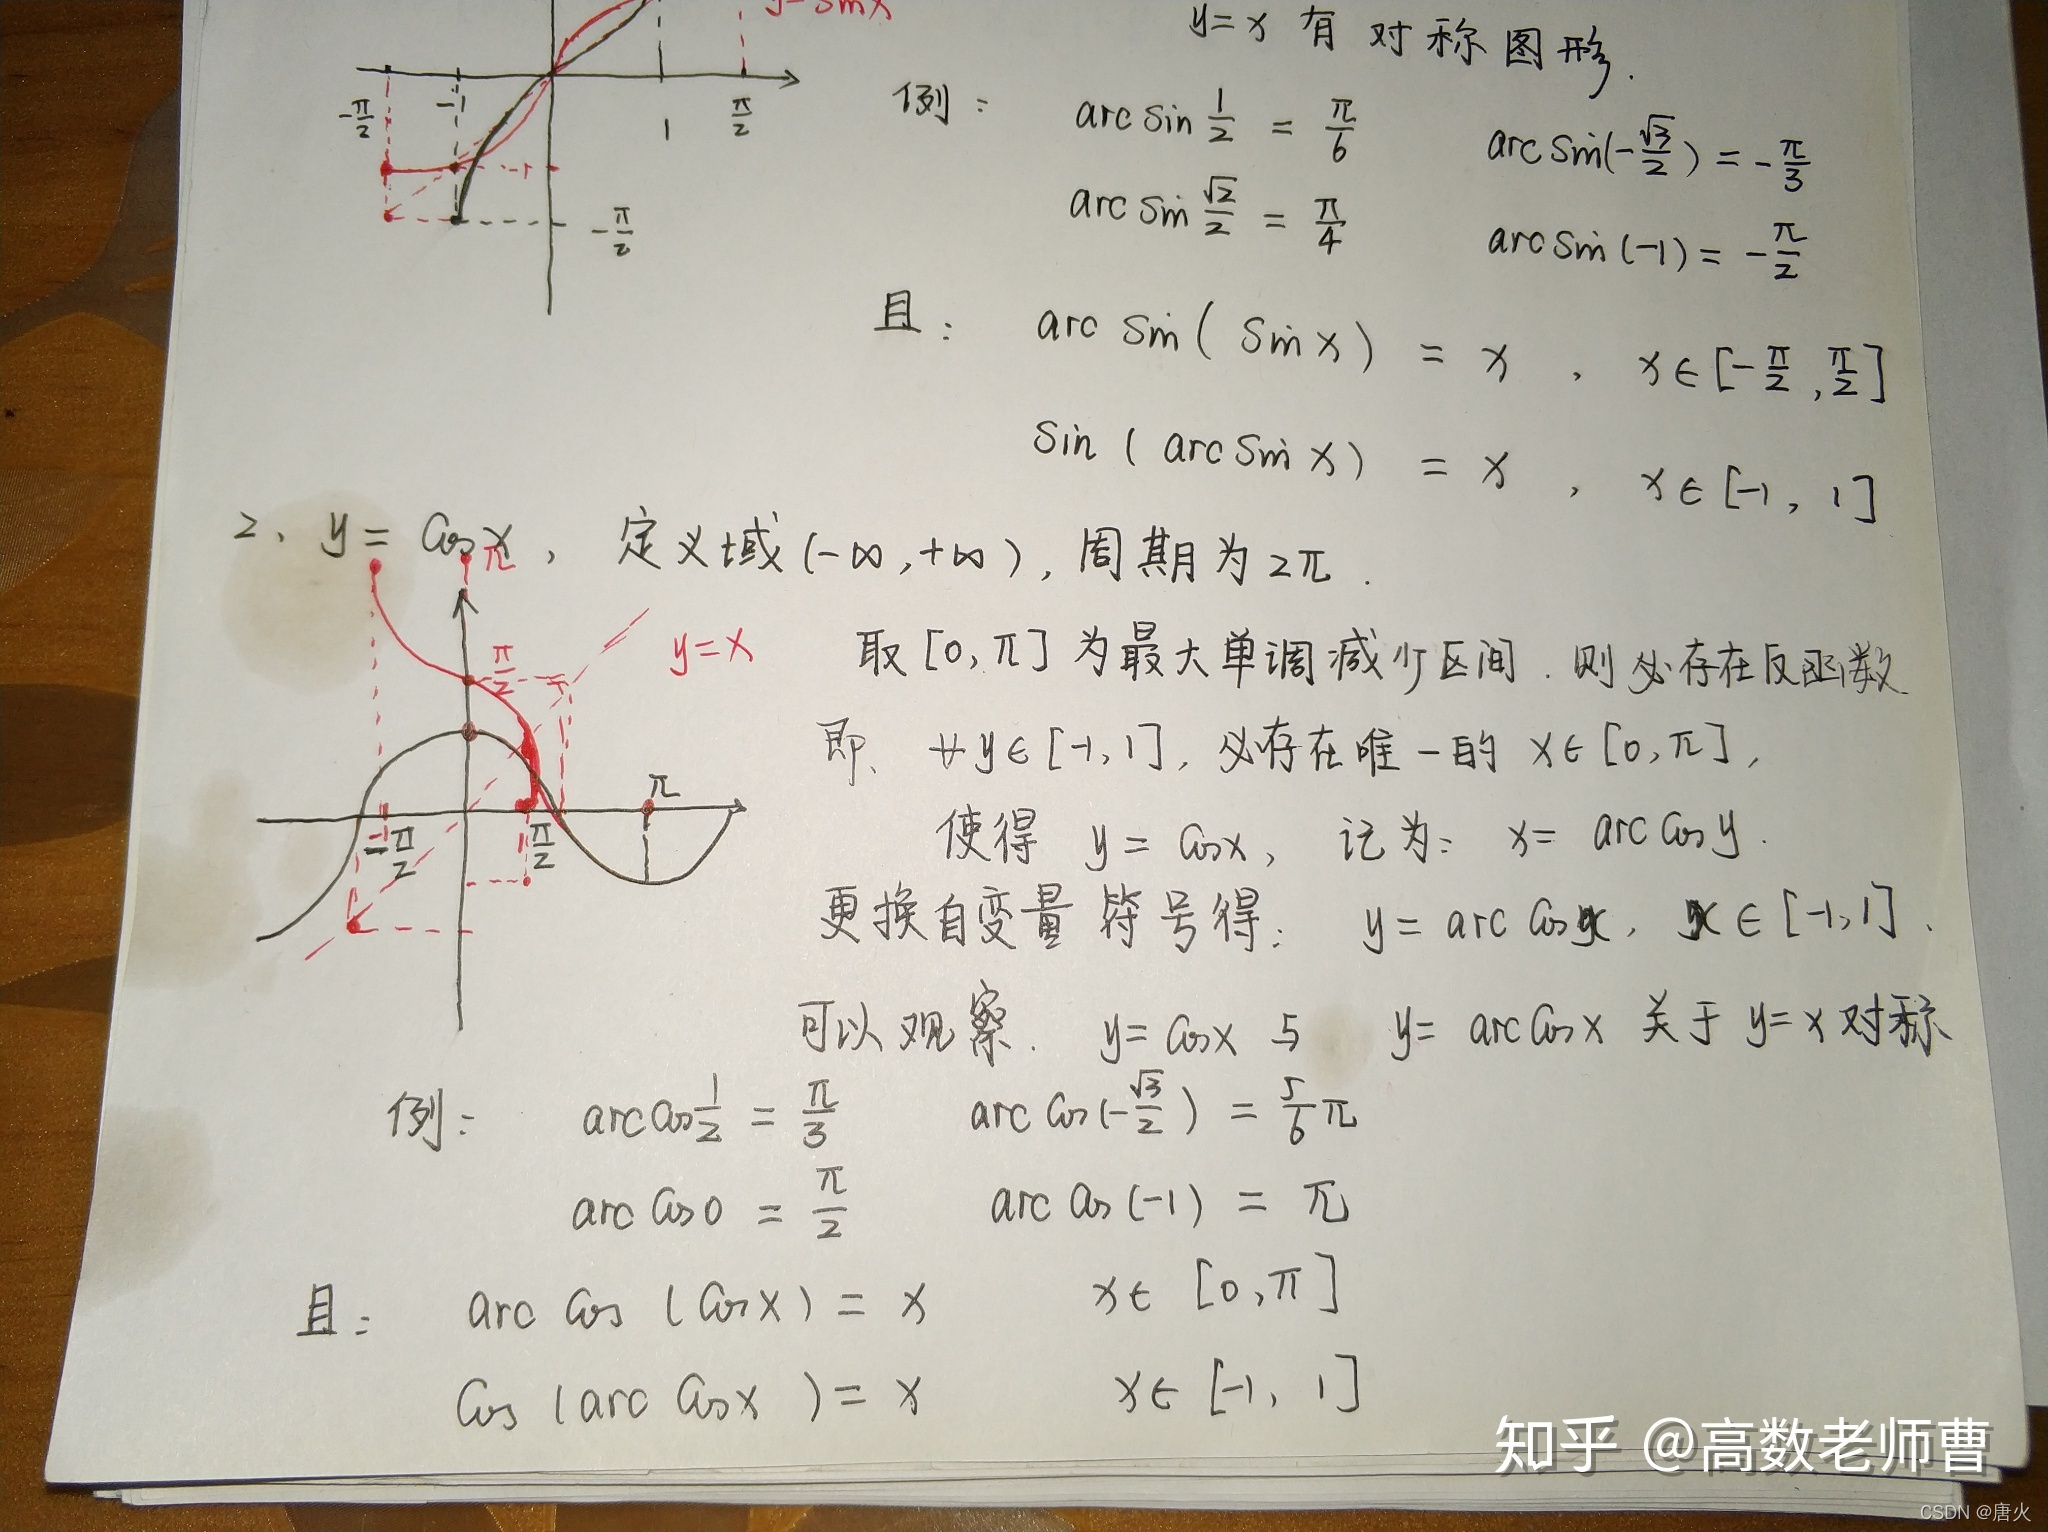 y=sinx
y=x 有对称图形.
-π/2 -1 1 π/2
-1
-π/2
例: arcsin 1/2 = π/6 arcsin(-√3/2) = -π/3
arcsin √2/2 = π/4 arcsin(-1) = -π/2
且: arcsin(sinx) = x , x∈[-π/2, π/2]
sin(arcsinx) = x , x∈[-1, 1]
2、y= cosx, 定义域(-∞,+∞), 周期为2π.
π
π/2
y=x
取[0,π]为最大单调减少区间. 则必存在反函数
即、∀y∈[-1,1], 必存在唯一的 x∈[0,π],
π
-1
-π/2 1 π/2
使得 y= cosx, 记为: x= arccosy.
更换自变量符号得: y= arccosx, x∈[-1,1].
可以观察. y=cosx 与 y= arccosx 关于 y=x 对称
例: arccos 1/2 = π/3 arccos(-√3/2) = 5/6 π
arccos0 = π/2 arccos(-1) = π
且: arccos(cosx) = x x∈[0,π]
cos(arccosx) = x x∈[-1, 1]
知乎 @高数老师曹
CSDN @唐火